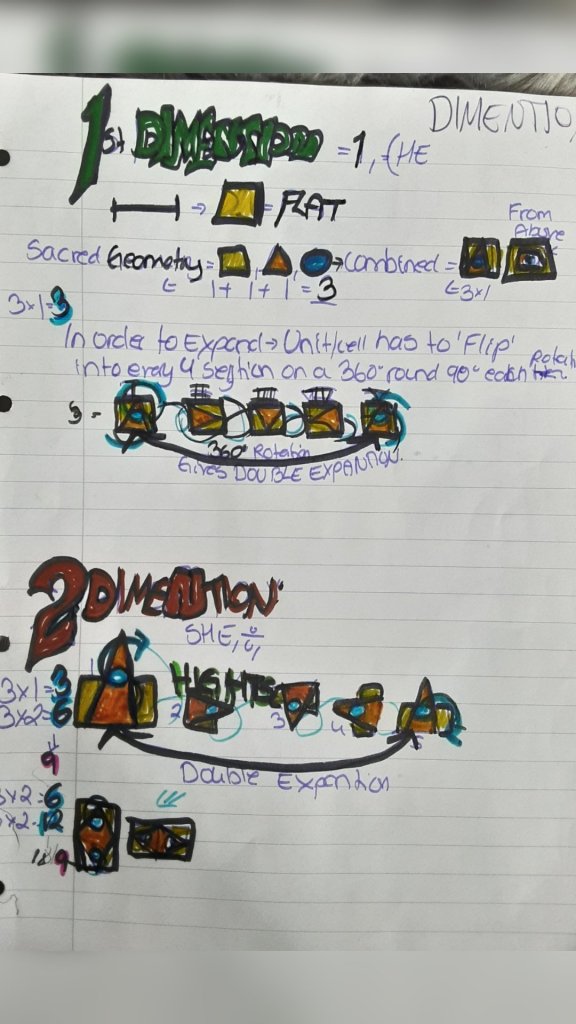 DIMENTIO
1st DIMENTION =1, {HE
→ = FLAT
From Above
Sacred Geometry = , , → Combined =
1+ 1+ 1 = 3
3x1
3x1=3
In order to Expand → Unit/cell has to 'Flip'
into every 4 section on a 360° round 90° each
360° Rotation
Gives DOUBLE EXPANTION.
2 DIMENTION
SHE,
HIGHTS
3x1=3
3x2=6
1
2
3
4
5
9
Double Expantion
x2=6
x2=12
9